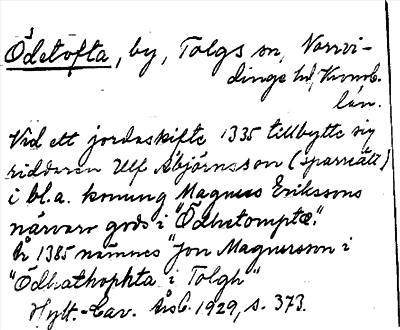 Ödetofta, by, Tolgs sn, Norrvi-
dinge hd, Kronob.
län.
Vid ett jordaskifte 1335 tillbytte sig
riddaren Ulf Abjörnsson (sparreätt)
i bl.a. konung Magnus Erikssons
närvaro gods i "Ödhetomptæ".
År 1385 nämnes "Jon Magnusson i
"Ödhathophta i Tolgh"
Hylt.-Cav. Årsb. 1929, s. 373.